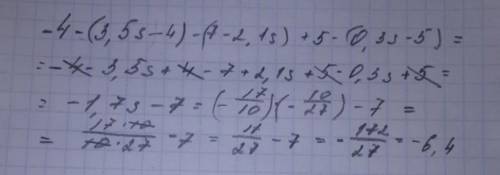 -4-(3,5s-4)-(7-2,1s)+5-(0,3s-5)=
=-4-3,5s+4-7+2,1s+5-0,3s+5=
= -1,7s-7=(-17/10)(-10/27)-7 =
= 17·10/10·27 -7 = 17/27 -7 = -172/27 = -6,4